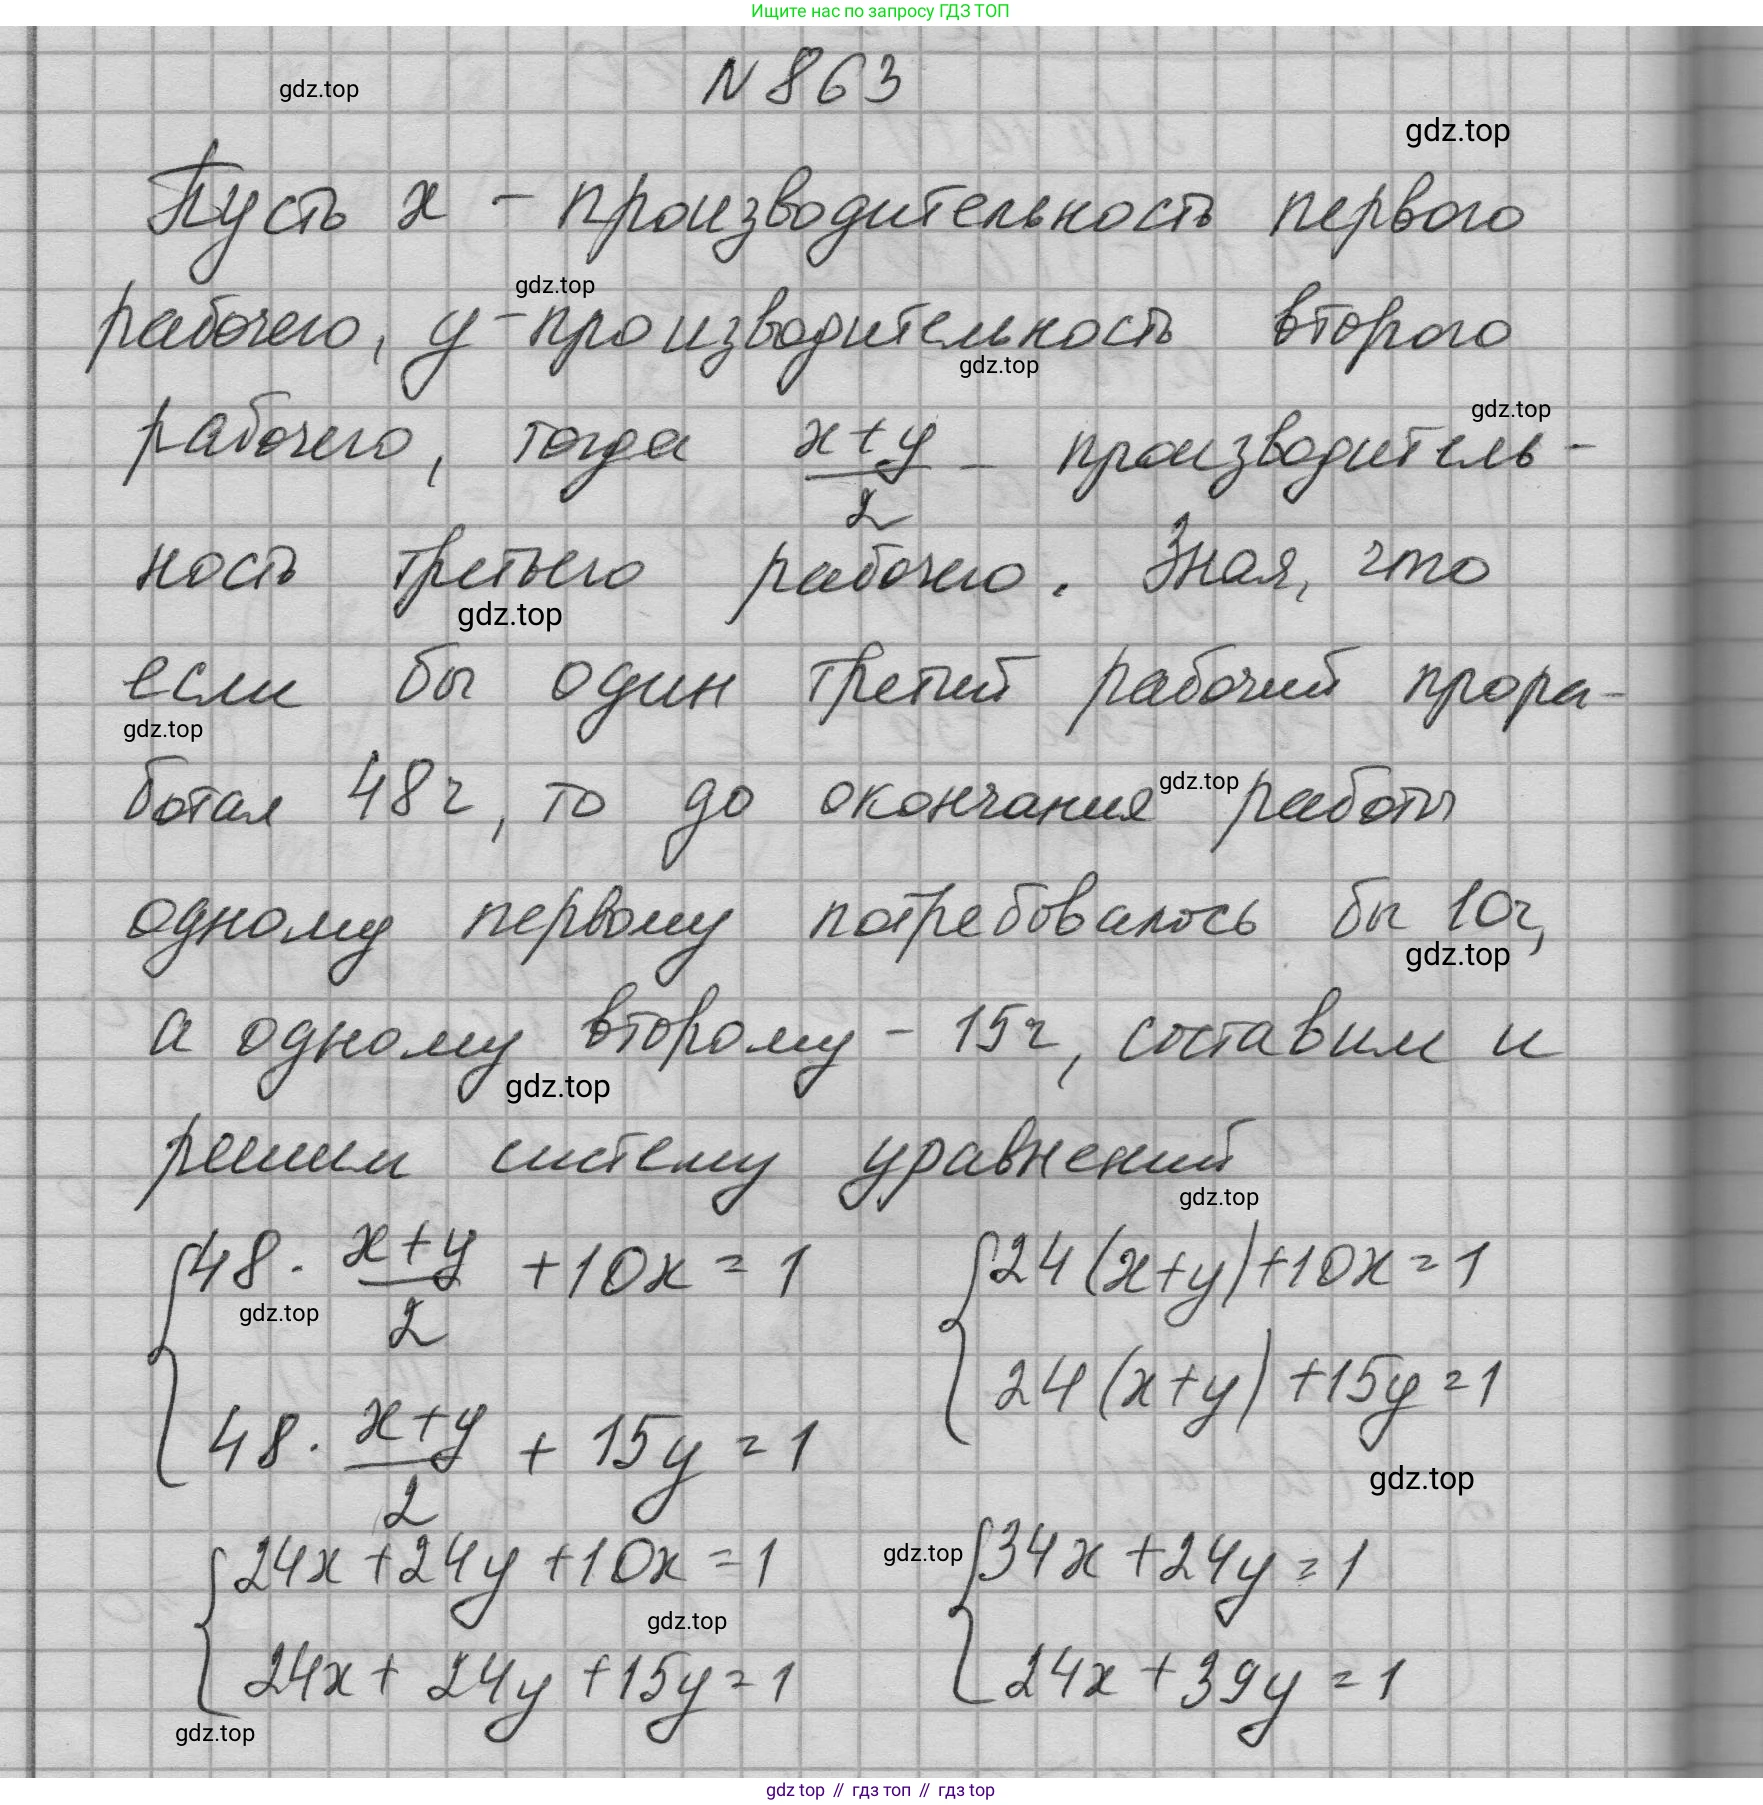 Ищите нас по запросу ГДЗ ТОП
N 863
gdz.top
gdz.top
Пусть x - производительность первого
gdz.top
рабочего, y - производительность второго
gdz.top
gdz.top
рабочего, тогда x+y/2 - производитель-
ность третьего рабочего. Зная, что
gdz.top
если бы один третий рабочий прора-
gdz.top
ботал 48ч, то до окончания работы
gdz.top
одному первому потребовалось бы 10ч,
gdz.top
а одному второму - 15ч, составим и
gdz.top
решим систему уравнений
gdz.top
{48 · x+y/2 + 10x = 1
48 · x+y/2 + 15y = 1
gdz.top
{24(x+y)+10x=1
24(x+y)+15y=1
gdz.top
{24x+24y+10x=1
24x+24y+15y=1
gdz.top
gdz.top
gdz.top
{34x+24y=1
24x+39y=1
gdz top // гдз топ // гдз top